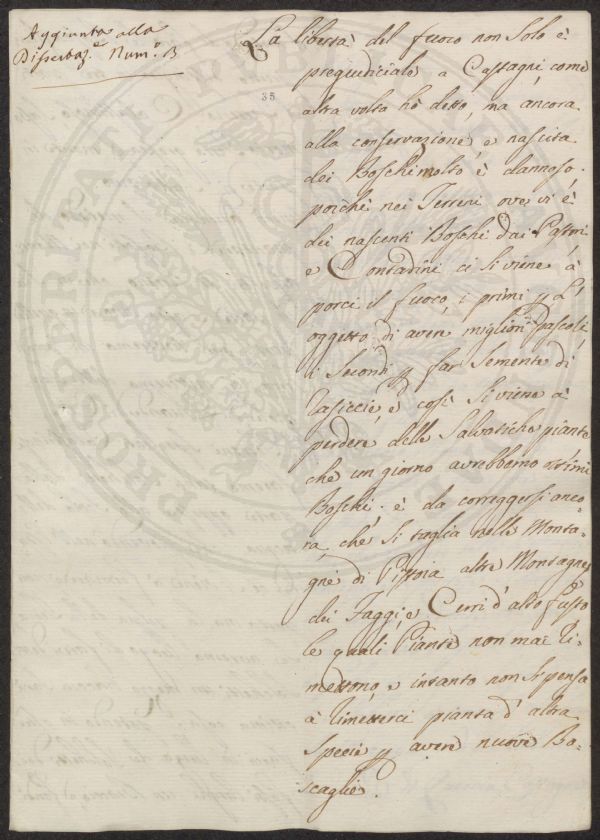 Aggiunta alla
Dissertaz.e Num.o B
35
La libertà del fuoco non Solo è
pregiudiciale a Castagni, come
altra volta hò detto, ma ancora
alla conservazione, e nascita
dei Boschi molto è dannoso,
poichè nei Terreni ove vi è
dei nascenti Boschi dai Pastori
e Contadini ci si viene à
porci il fuoco, i primi p L'
oggetto di avere migliori Pascoli,
i Secondi p far Semente di
e così Si viene à
perdere delle Salvatiche piante
che un giorno avrebbemo ottimi
Boschi. è da correggersi anco-
ra, che Si taglia nelle Monta-
gne di Pistoia altre Montagne
dei Faggi, e Cerri d'alto fusto
le quali Piante non mai ri-
mettono, e intanto non Si pensa
à rimetterci pianta d'altra
Specie p avere nuove Bo-
scaglie.
PROSPERITATI PUBLICAE